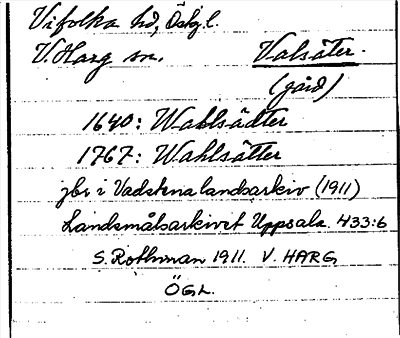 Vifolka hd, Östg.l.
V. Harg sn. Valsäter.
(gård)
1640: Wahlsädter
1767: Wahlsätter
jbr i Vadstena landsarkiv (1911)
Landsmålsarkivet Uppsala. 433:6
S. Rothman 1911. V. HARG
ÖGL.